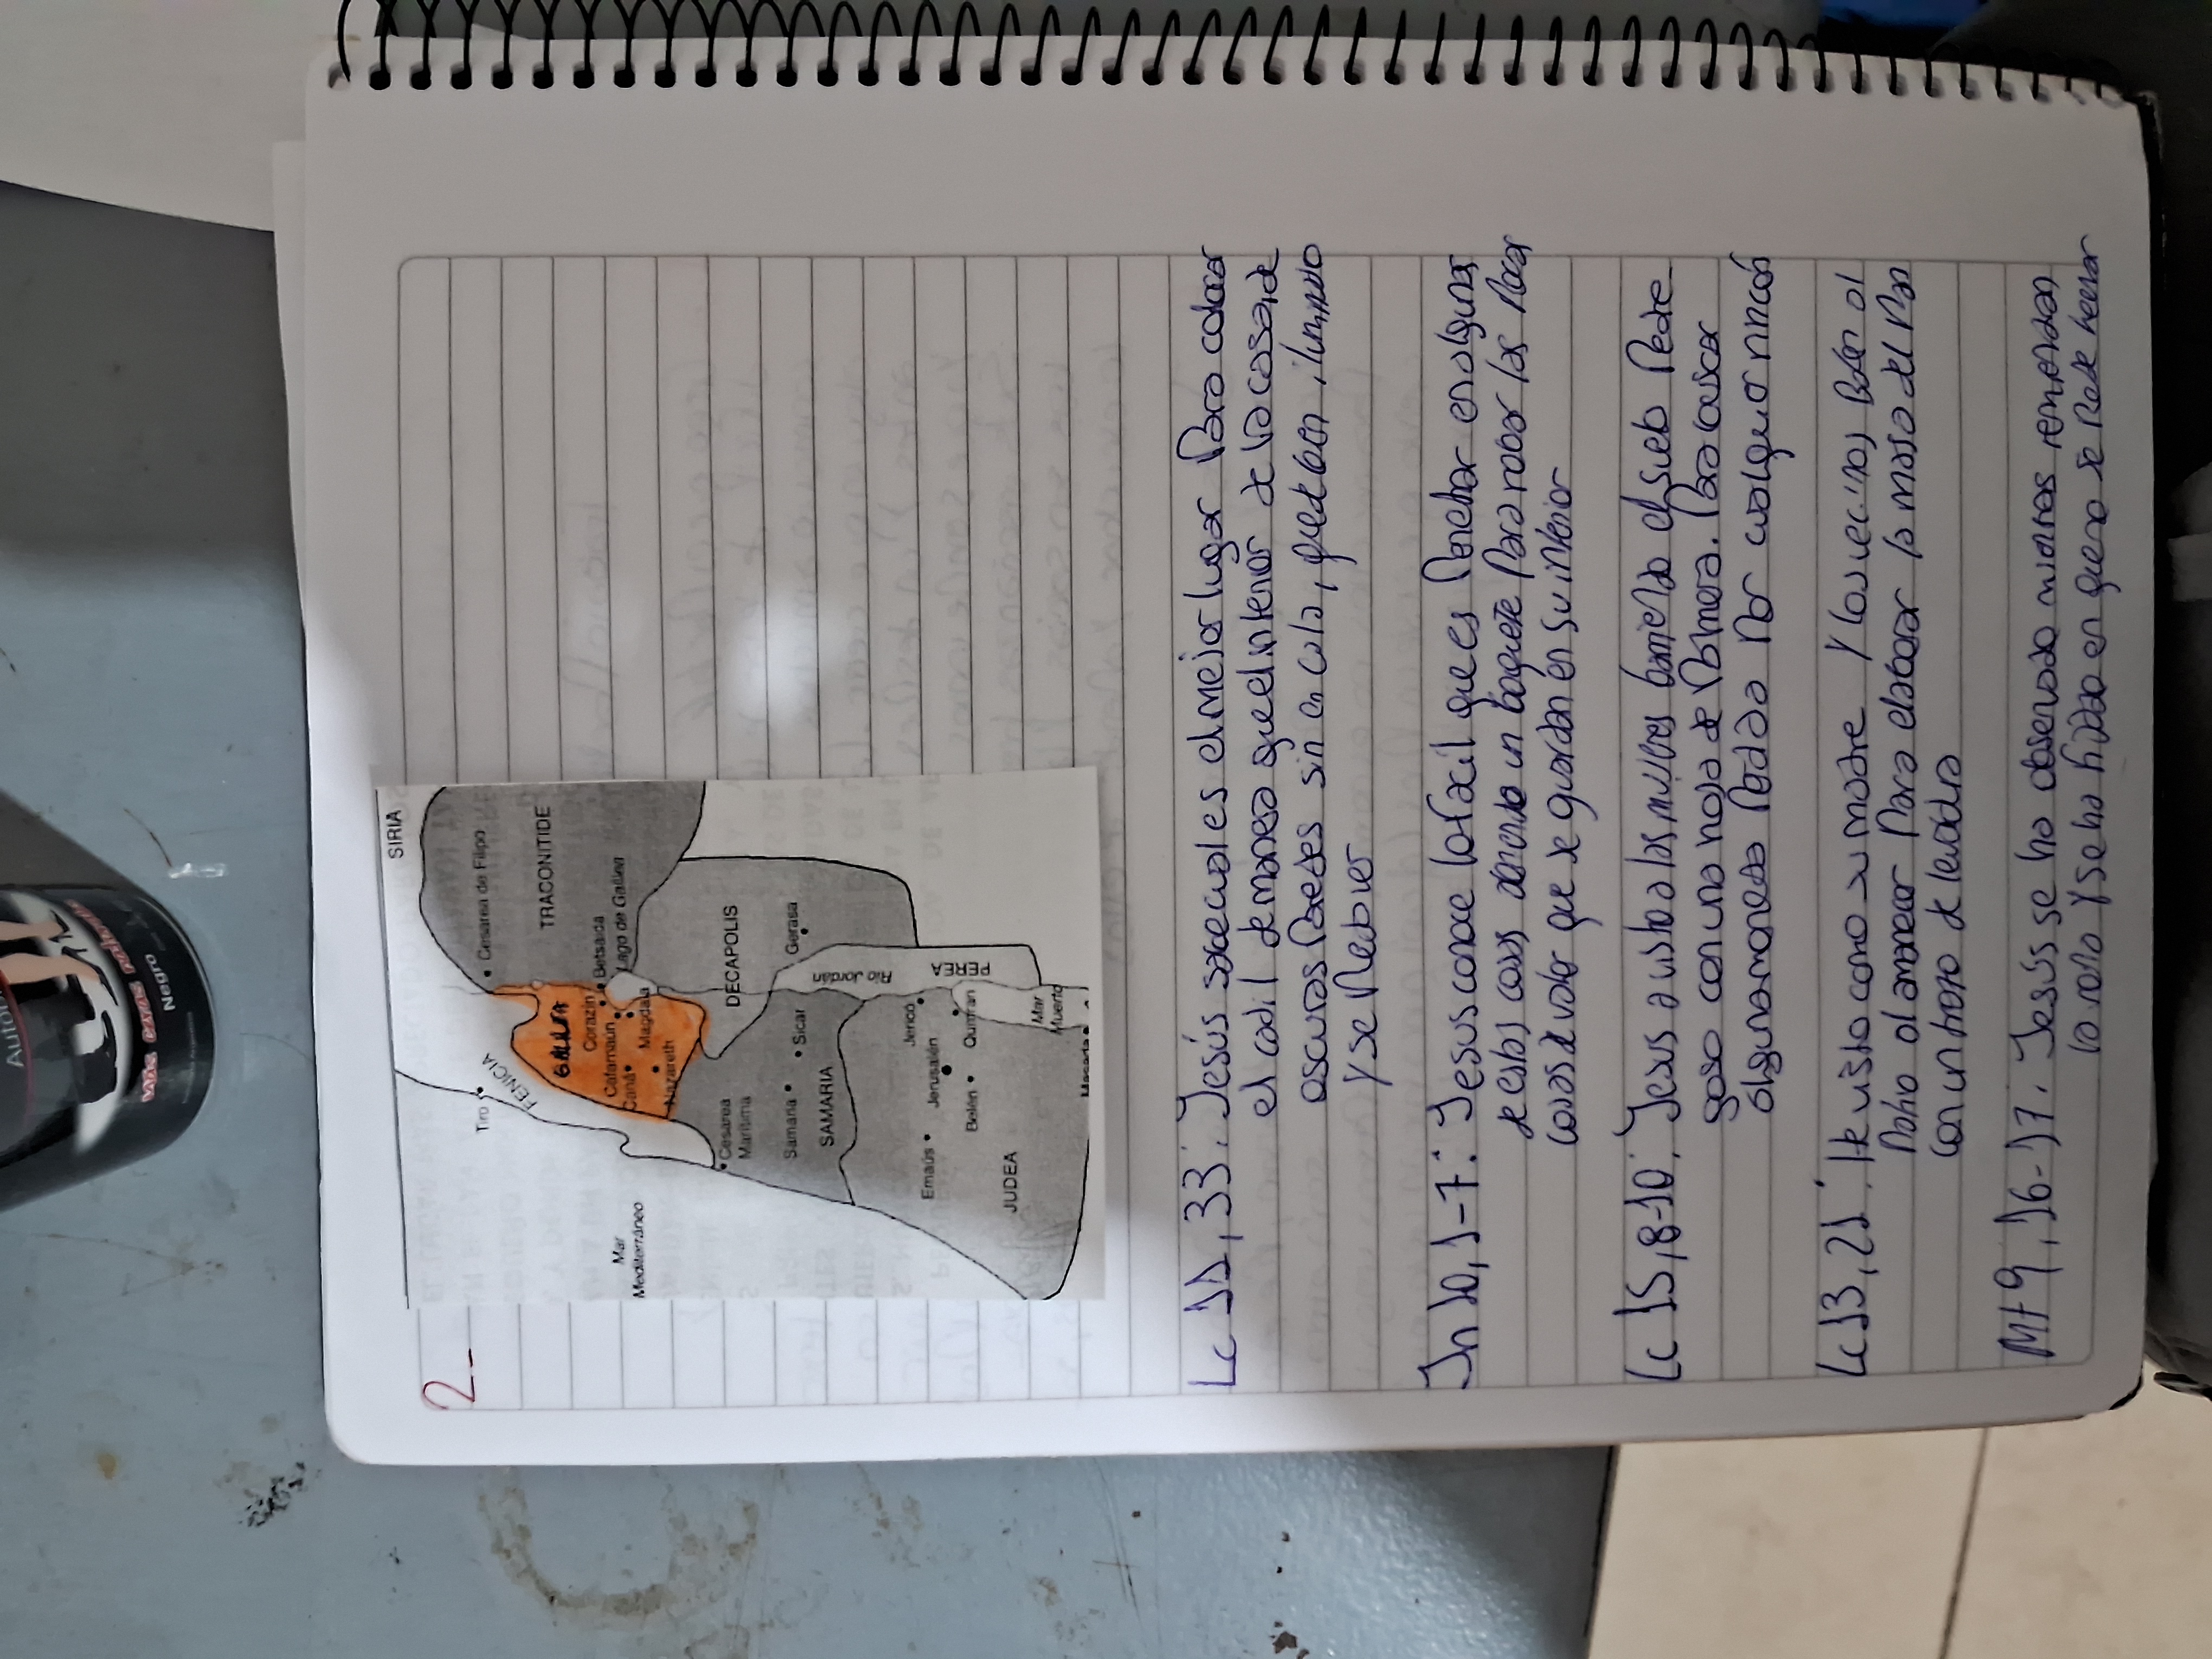 2-
SIRIA
• Cesarea de Filipo
Tiro
FENICIA
TRACONITIDE
GALILEA
Corazin
Betsaida
Cafarnaún
Lago de Galilea
Caná
Magdala
Nazareth
Mar
Mediterráneo
Cesarea
Marítima
DECAPOLIS
Samaria
Sicar
Gerasa
SAMARIA
Río Jordán
Emaús
Jerusalén
Jericó
PEREA
Belén
Qumran
JUDEA
Mar
Muerto
Masada
Lc 11, 33: Jesús sabe cual es el mejor lugar Para colocar
el cadil de manera que el interior de la casa, de
oscuras Paredes sin en cala, quede bien iluminado
y se Pueda ver
Jn 10, 1-7: Jesus conoce lo facil que es Perchar en algunas
de estas casas abriendo un boquete Para robar las Pocas
cosas de valor que se guardan en su interior
Lc 15, 8-10: Jesus a visto a las mujeres barriendo el suelo Pedre
goso con una hoja de Palmera. Para buscar
alguna moneda Perdida Por cualquier rincón
Lc 13, 21: He visto como su madre y las vecinas, Baten al
Patio al amanecer Para elaborar la masa del Pan
con un trozo de levadura
Mt 9, 16-17: Jesús se ha observado mientras remiendan
la ropa y se ha fijado en que no se Puede hechar